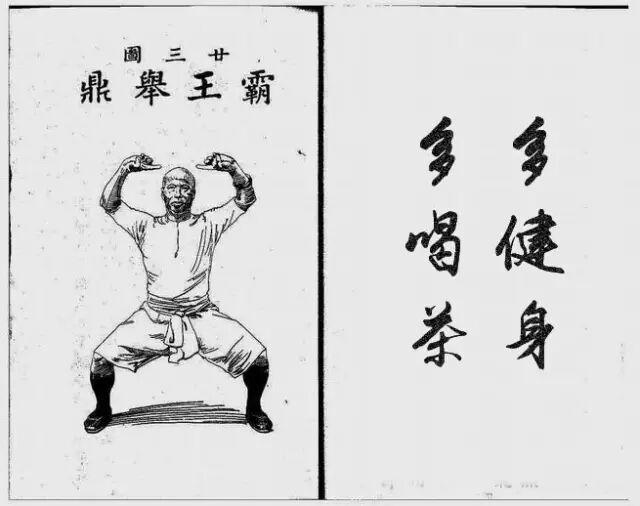 廿三圖
霸王舉鼎
多健身
多喝茶